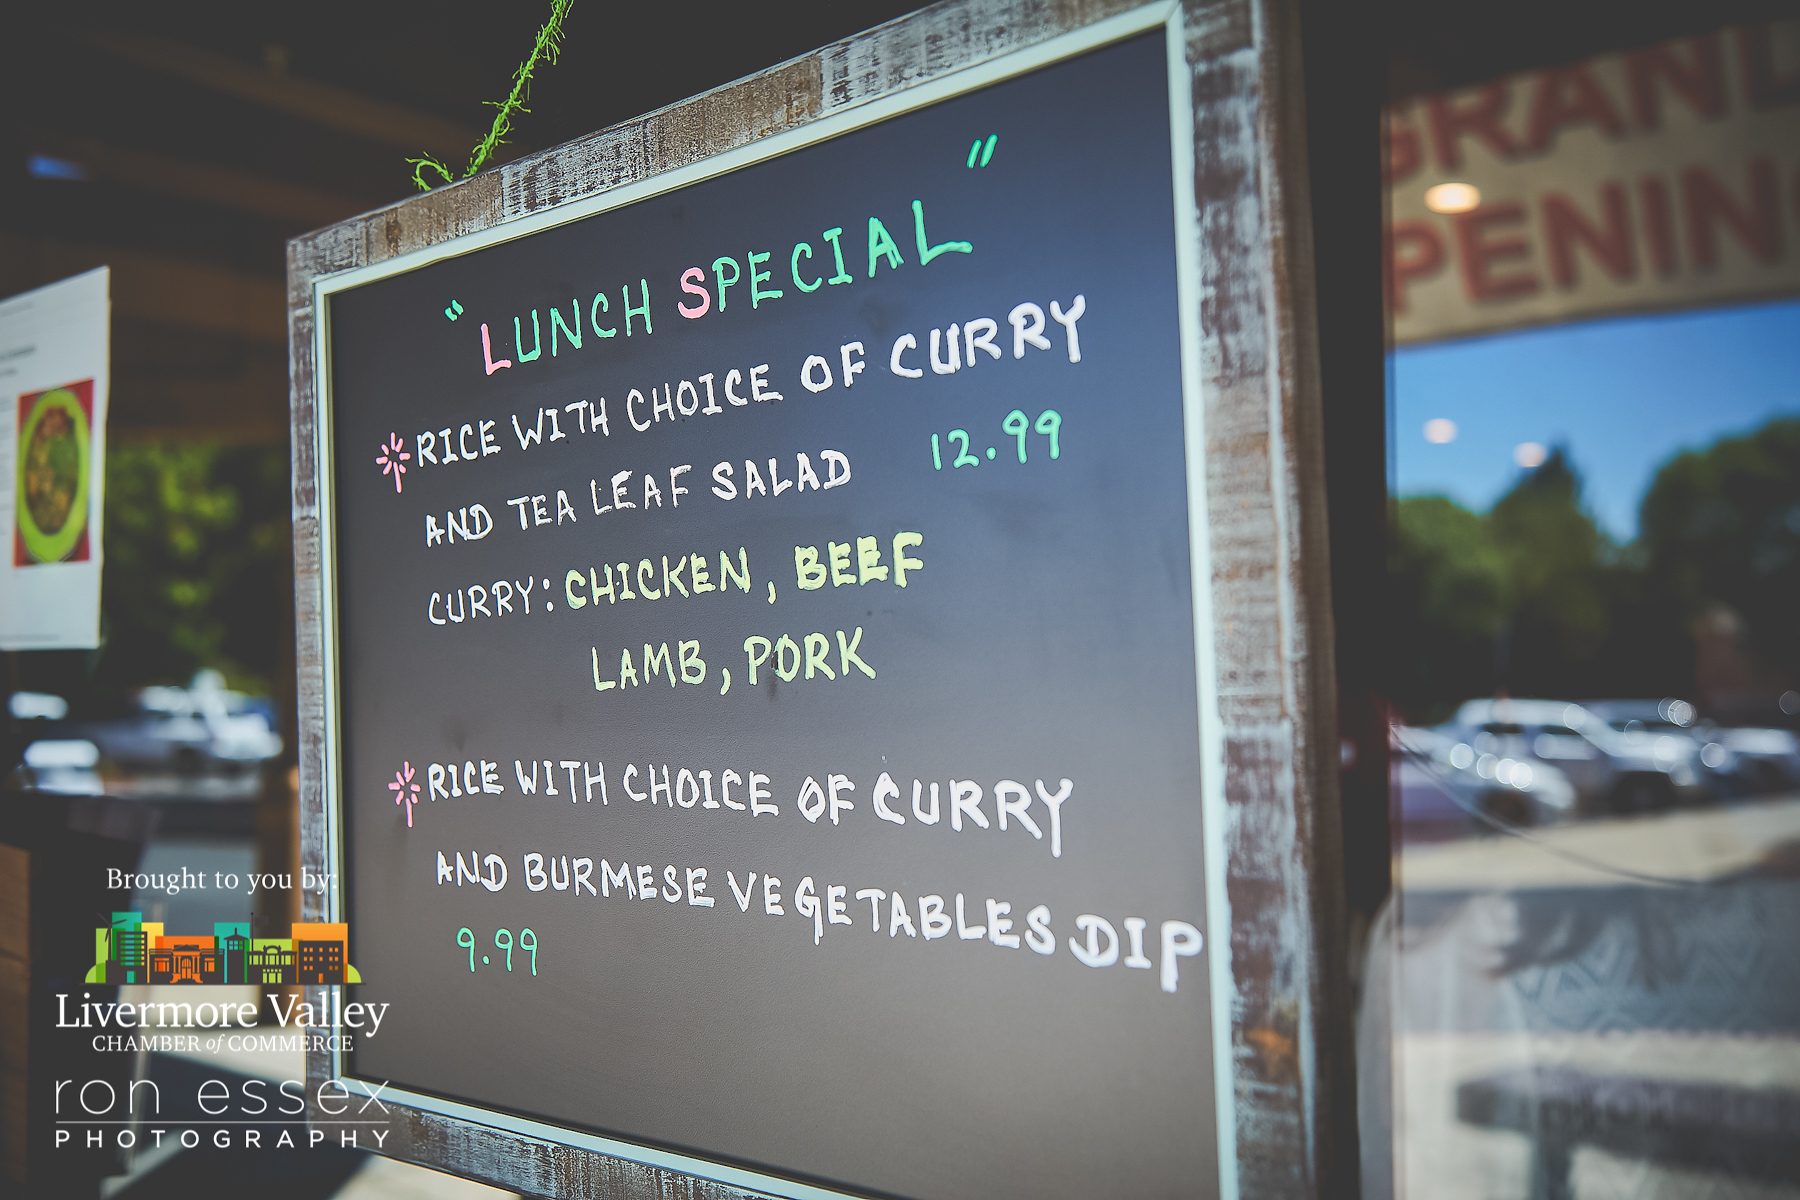 "LUNCH SPECIAL"
RICE WITH CHOICE OF CURRY
AND TEA LEAF SALAD 12.99
CURRY: CHICKEN, BEEF
LAMB, PORK
RICE WITH CHOICE OF CURRY
AND BURMESE VEGETABLES DIP
9.99
GRAND
PENIN
Brought to you by:
Livermore Valley
CHAMBER of COMMERCE
ron essex
PHOTOGRAPHY